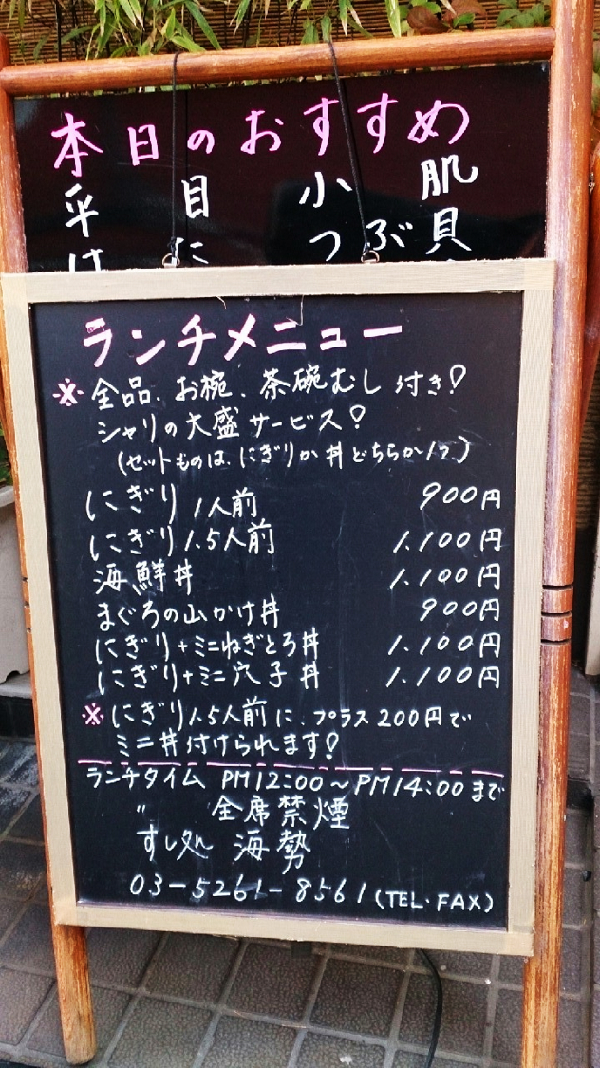 本日のおすすめ
平目 小肌
つぶ貝
ランチメニュー
※全品、お椀、茶碗むし付き!
シャリの大盛サービス!
(セットものは、にぎりか丼どちらか1つ)
にぎり1人前 900円
にぎり1.5人前 1.100円
海鮮丼 1.100円
まぐろの山かけ丼 900円
にぎり+ミニねぎとろ丼 1.100円
にぎり+ミニ穴子丼 1.100円
※にぎり1.5人前に、プラス200円で
ミニ丼付けられます!
ランチタイム PM12:00〜PM14:00まで
〃 全席禁煙
すし処 海勢
03-5261-8561(TEL・FAX)